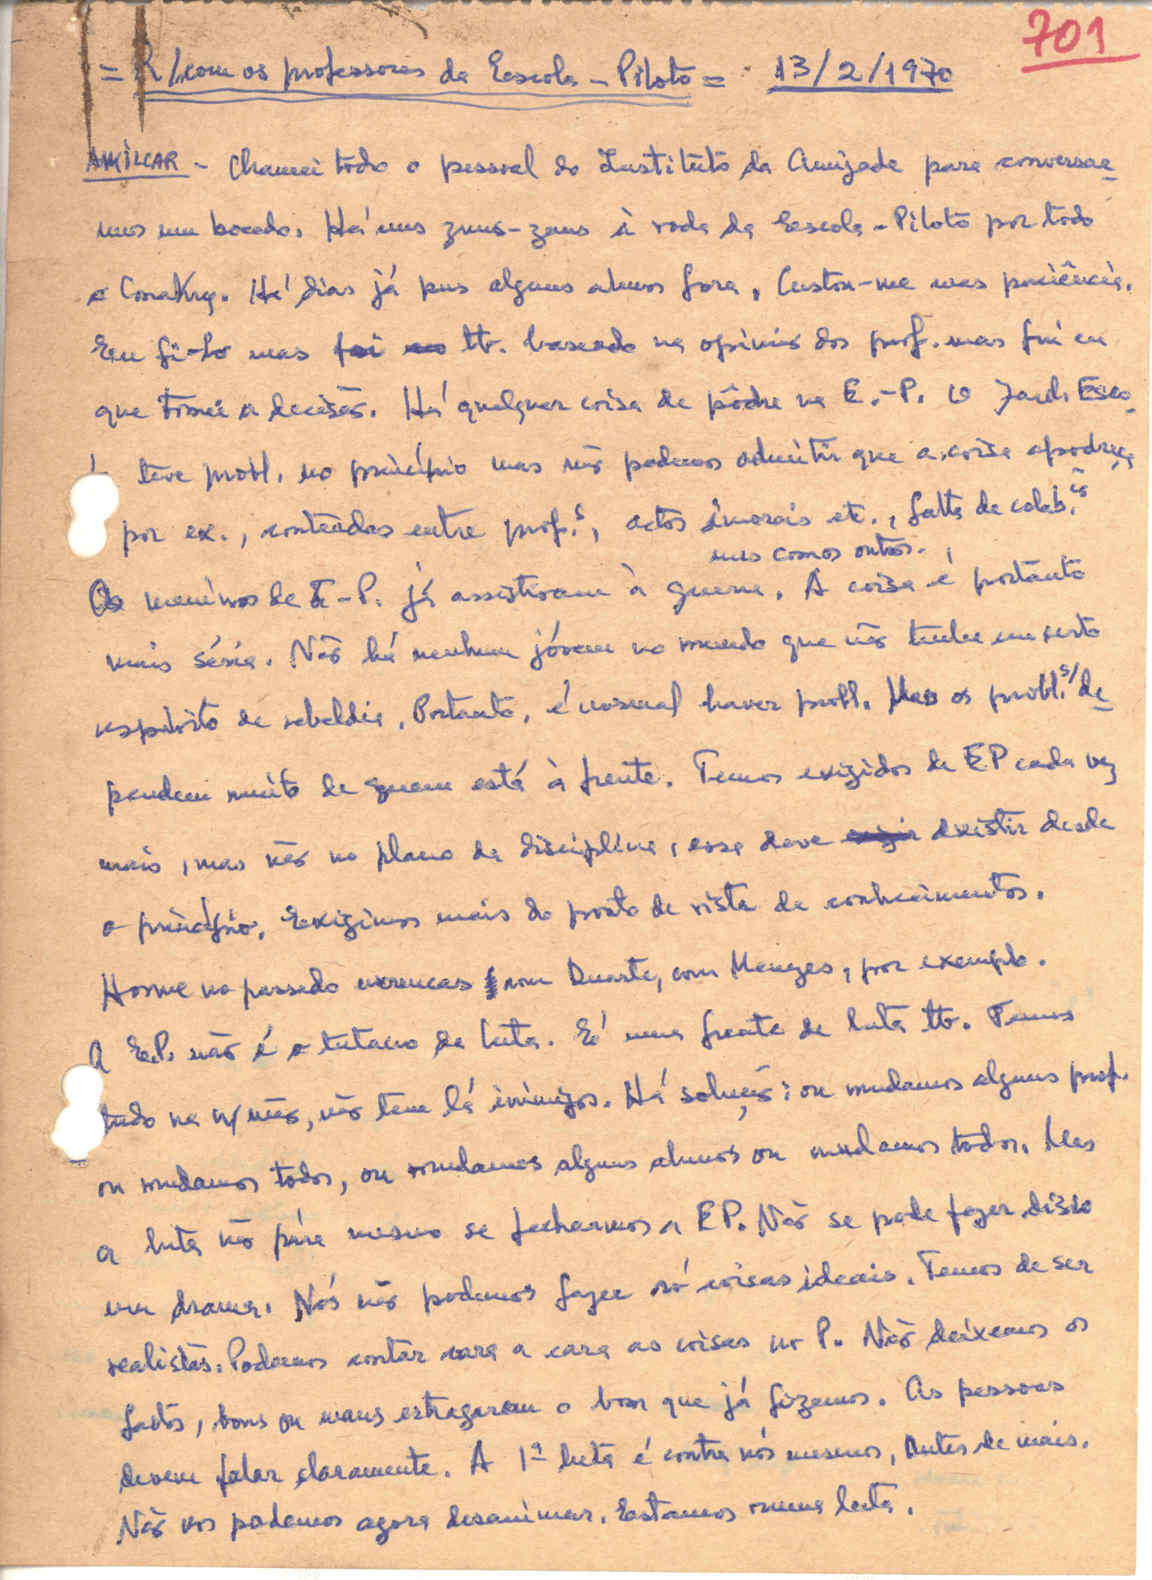 701
= R/com os professores da Escola-Piloto = 13/2/1970
AMILCAR - Chamei todo o pessoal do Instituto da Amizade para conversar-
mos um bocado. Há uns zuns-zuns à roda da Escola-Piloto por todo
o Conakry. Há dias já pus alguns alunos fora. Custou-me mas paciência.
Eu fi-lo mas tb. baseado na opinião dos prof. mas fui eu
que tomei a decisão. Há qualquer coisa de pôdre na E.-P. O Jard. Esco-
teve probl. no princípio mas não podemos admitir que a coisa apodreça
por ex., contendas entre prof.s, actos imorais etc., falta de colab.ão
uns com os outros.
Os meninos da E-P. já assistiram à guerra. A coisa é portanto
mais séria. Não há nenhum jóvem no mundo que não tenha um certo
espírito de rebeldia. Portanto, é normal haver probl. Mas os probl.s/ de-
pendem muito de quem está à frente. Temos exigidos da EP cada vez
mais, mas não no plano da disciplina, essa deve existir desde
o princípio. Exigimos mais do ponto de vista de conhecimentos.
Houve no passado com Duarte, com Menezes, por exemplo.
A E.P. não é o tutano da luta. É uma frente de luta tb. Temos
tudo na n/ mão, não tem lá inimigos. Há solução: ou mudamos alguns prof.
ou mudamos todos, ou mudamos alguns alunos ou mudamos todos. Mas
a luta não pára mesmo se fecharmos a EP. Não se pode fazer disso
um drama. Nós não podemos fazer só coisas ideais. Temos de ser
realistas. Podemos contar cara a cara as coisas no P. Não deixemos os
factos, bons ou maus estragarem o bom que já fizemos. As pessoas
devem falar claramente. A 1ª luta é contra nós mesmos, antes de mais.
Não nos podemos agora desanimar. Estamos numa luta.